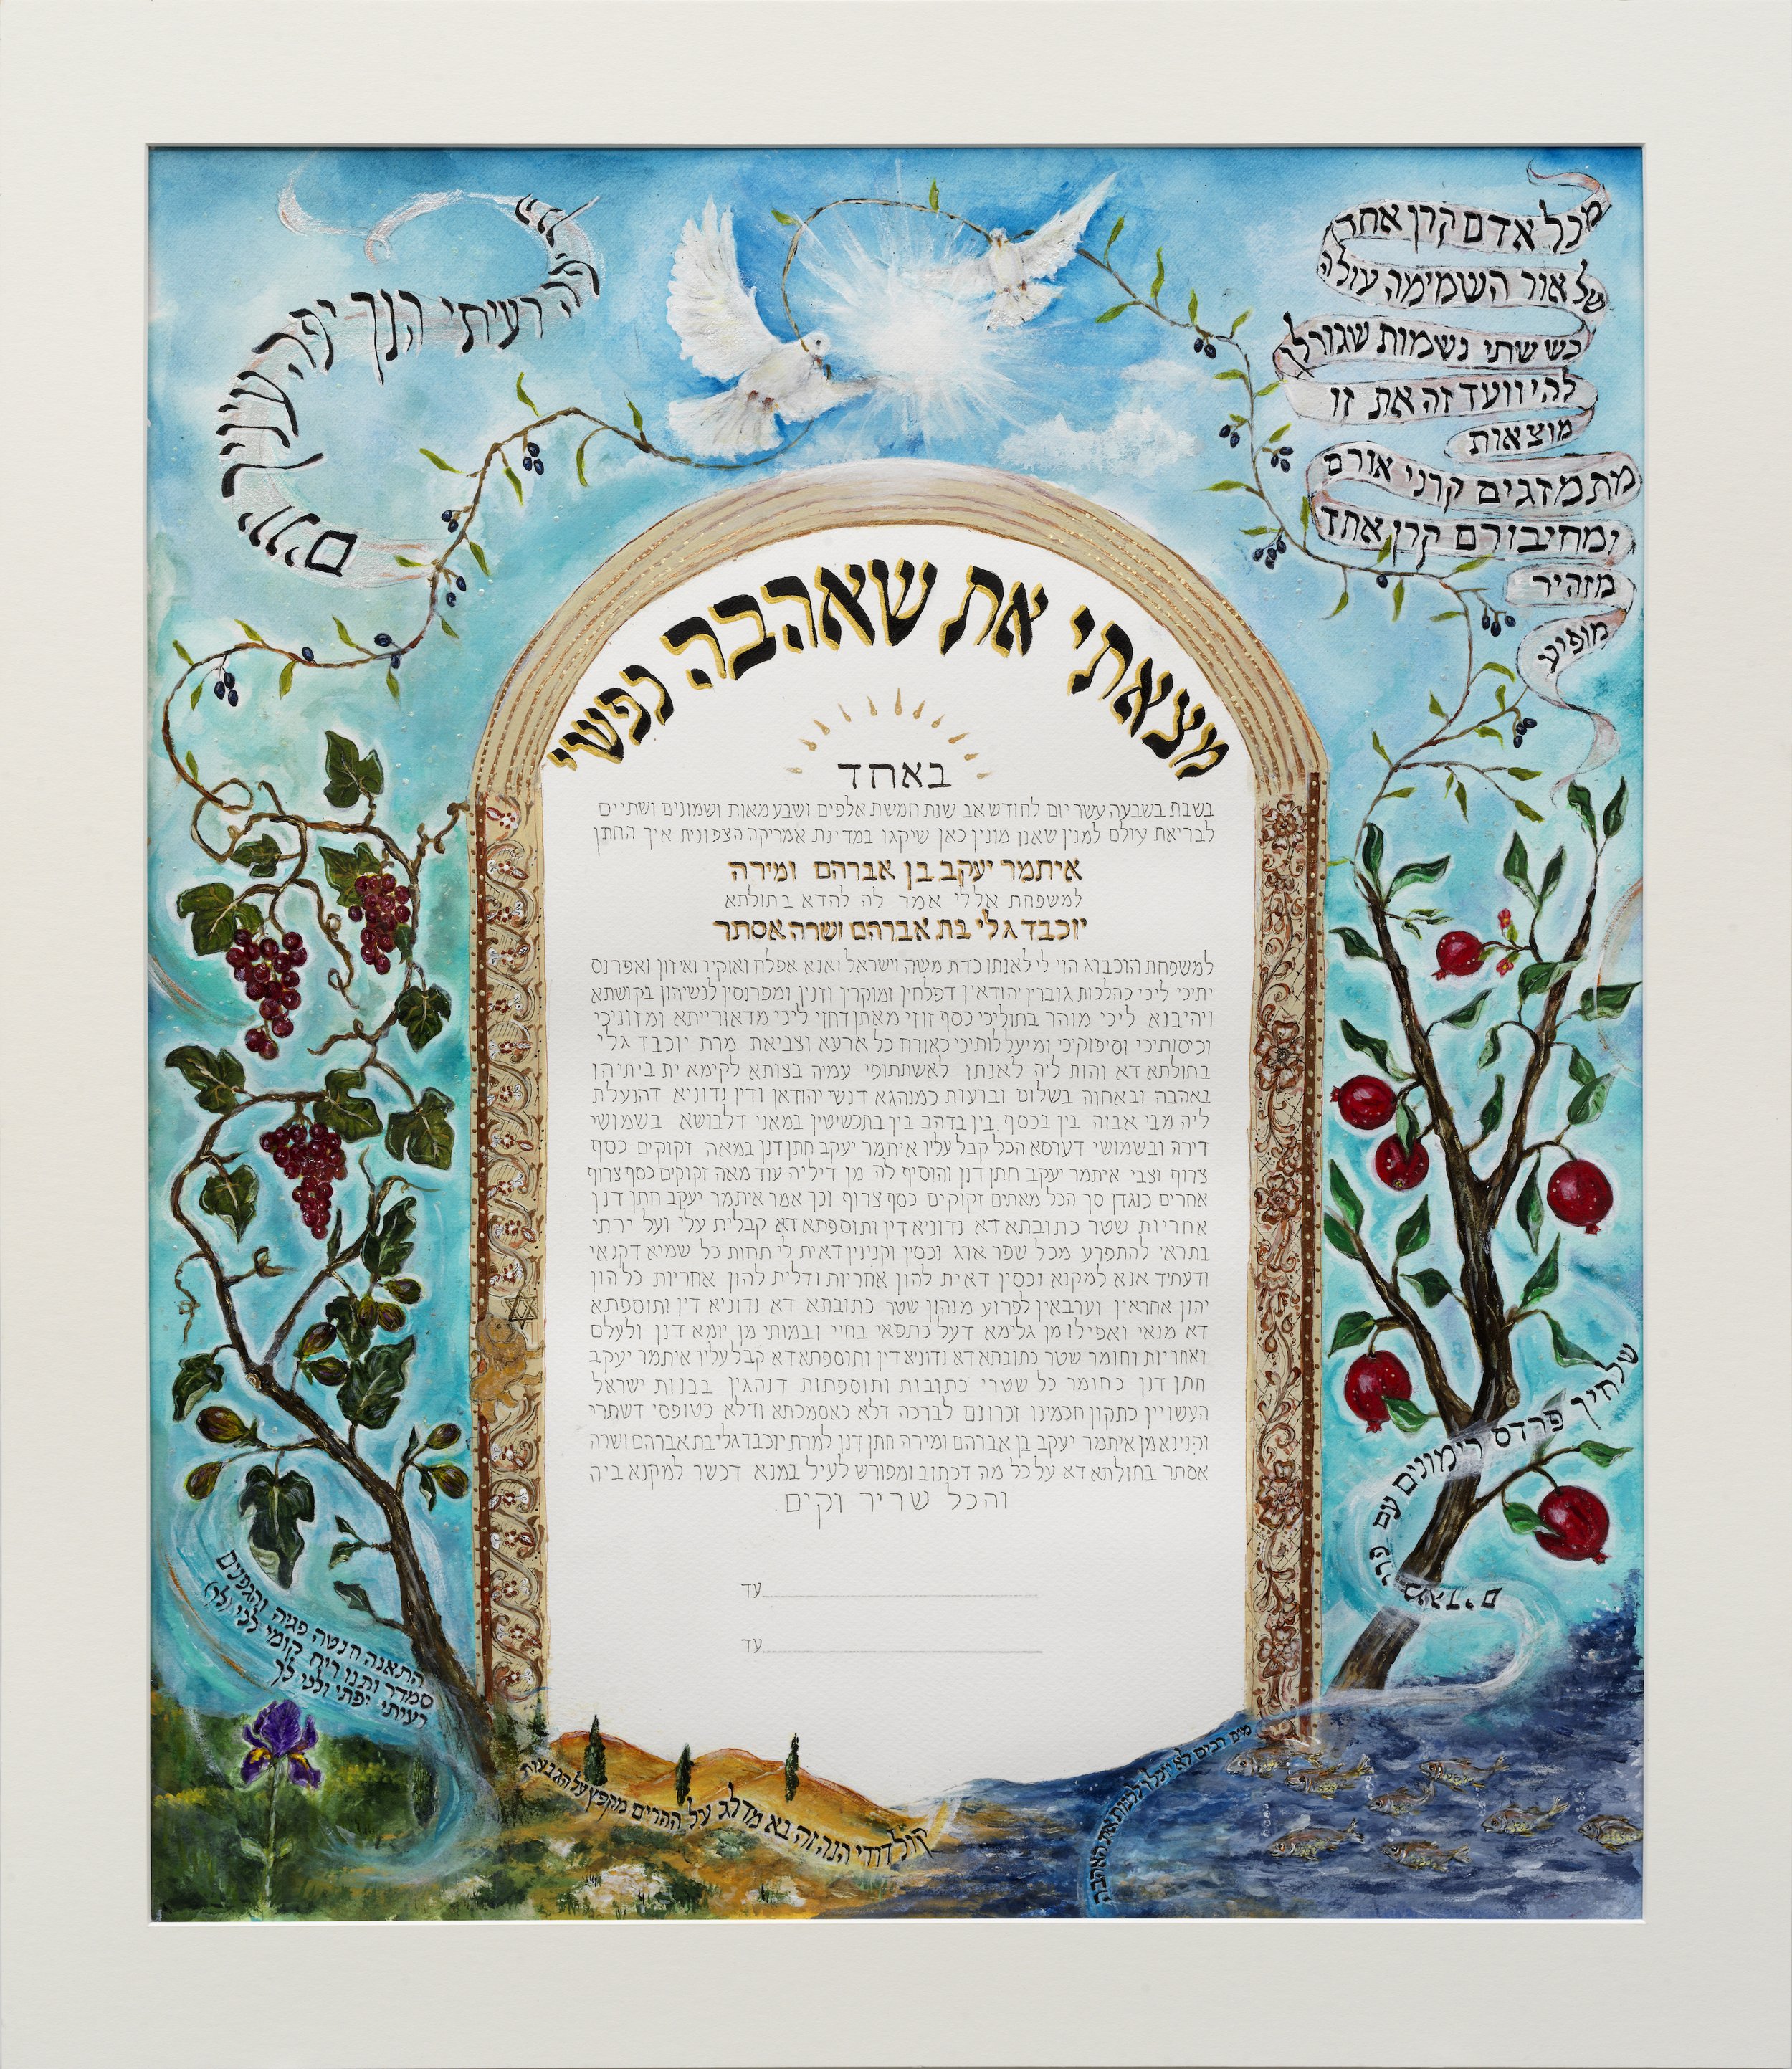 הנך יפה רעיתי הנך יפה עיניך יונים
מכל אדם קרן אחד
של אור השמימה עולה
כששתי נשמות שגורלן
להיוועד זה את זו
מוצאות
מתמזגים קרני אורם
ומחיבורם קרן אחד
מזהיר
מופיע
מצאתי את שאהבה נפשי
באחד
בשבת בשבעה עשר יום לחודש אב שנת חמשת אלפים ושבע מאות ושמונים ושתיים
לבריאת עולם למנין שאנו מונין כאן שיקגו במדינת אמריקה הצפונית איך החתן
איתמר יעקב בן אברהם ומירה
למשפחת אללי אמר לה להדא בתולתא
יוכבד גלי בת אברהם ושרה אסתר
למשפחת הוכבוג הוי לי לאנתו כדת משה וישראל ואנא אפלח ואוקיר ואיזון ואפרנס
יתיכי ליכי כהלכות גוברין יהודאין דפלחין ומוקרין וזנין ומפרנסין לנשיהון בקושתא
ויהיבנא ליכי מוהר בתוליכי כסף זוזי מאתן דחזי ליכי מדאורייתא ומזוניכי
וכיסותיכי וסיפוקיכי ומיעל לותיכי כאורח כל ארעא וצביאת מרת יוכבד גלי
בתולתא דא והות ליה לאנתו לאשתתופי עמיה בצותא לקימא ית ביתיהן
באהבה ובאחוה בשלום וברעות כמנהגא דנשי יהודאן ודין נדוניא דהנעלת
ליה מבי אבוה בין בכסף בין בדהב בין בתכשיטין במאני דלבושא בשמושי
דירה ובשמושי דערסא הכל קבל עליו איתמר יעקב חתן דנן במאה זקוקים כסף
צרוף וצבי איתמר יעקב חתן דנן והוסיף לה מן דיליה עוד מאה זקוקים כסף צרוף
אחרים כנגדן סך הכל מאתים זקוקים כסף צרוף וכך אמר איתמר יעקב חתן דנן
אחריות שטר כתובתא דא נדוניא דין ותוספתא דא קבלית עלי ועל ירתי
בתראי להתפרע מכל שפר ארג נכסין וקנינין דאית לי תחות כל שמיא דקנאי
ודעתיד אנא למקנא נכסין דאית להון אחריות ודלית להון אחריות כלהון
יהון אחראין וערבאין לפרוע מנהון שטר כתובתא דא נדוניא דין ותוספתא
דא מנאי ואפילו מן גלימא דעל כתפאי בחיי ובמותי מן יומא דנן ולעלם
ואחריות וחומר שטר כתובתא דא נדוניא דין ותוספתא דא קבל עליו איתמר יעקב
חתן דנן כחומר כל שטרי כתובות ותוספתות דנהגין בבנות ישראל
העשויין כתקון חכמינו זכרונם לברכה דלא כאסמכתא ודלא כטופסי דשתרי
וקנינא מן איתמר יעקב בן אברהם ומירה חתן דנן למרת יוכבד גלי בת אברהם ושרה
אסתר בתולתא דא על כל מה דכתוב ומפורש לעיל במנא דכשר למקנא ביה
והכל שריר וקים.
עד
עד
שלחיך פרדס רימונים עם פרי מגדים
התאנה חנטה פגיה והגפנים
סמדר ותנו ריח קומי לכי (לך)
רעיתי יפתי ולכי לך
קול דודי הנה זה בא מדלג על ההרים מקפץ על הגבעות
מים רבים לא יוכלו לכבות את האהבה